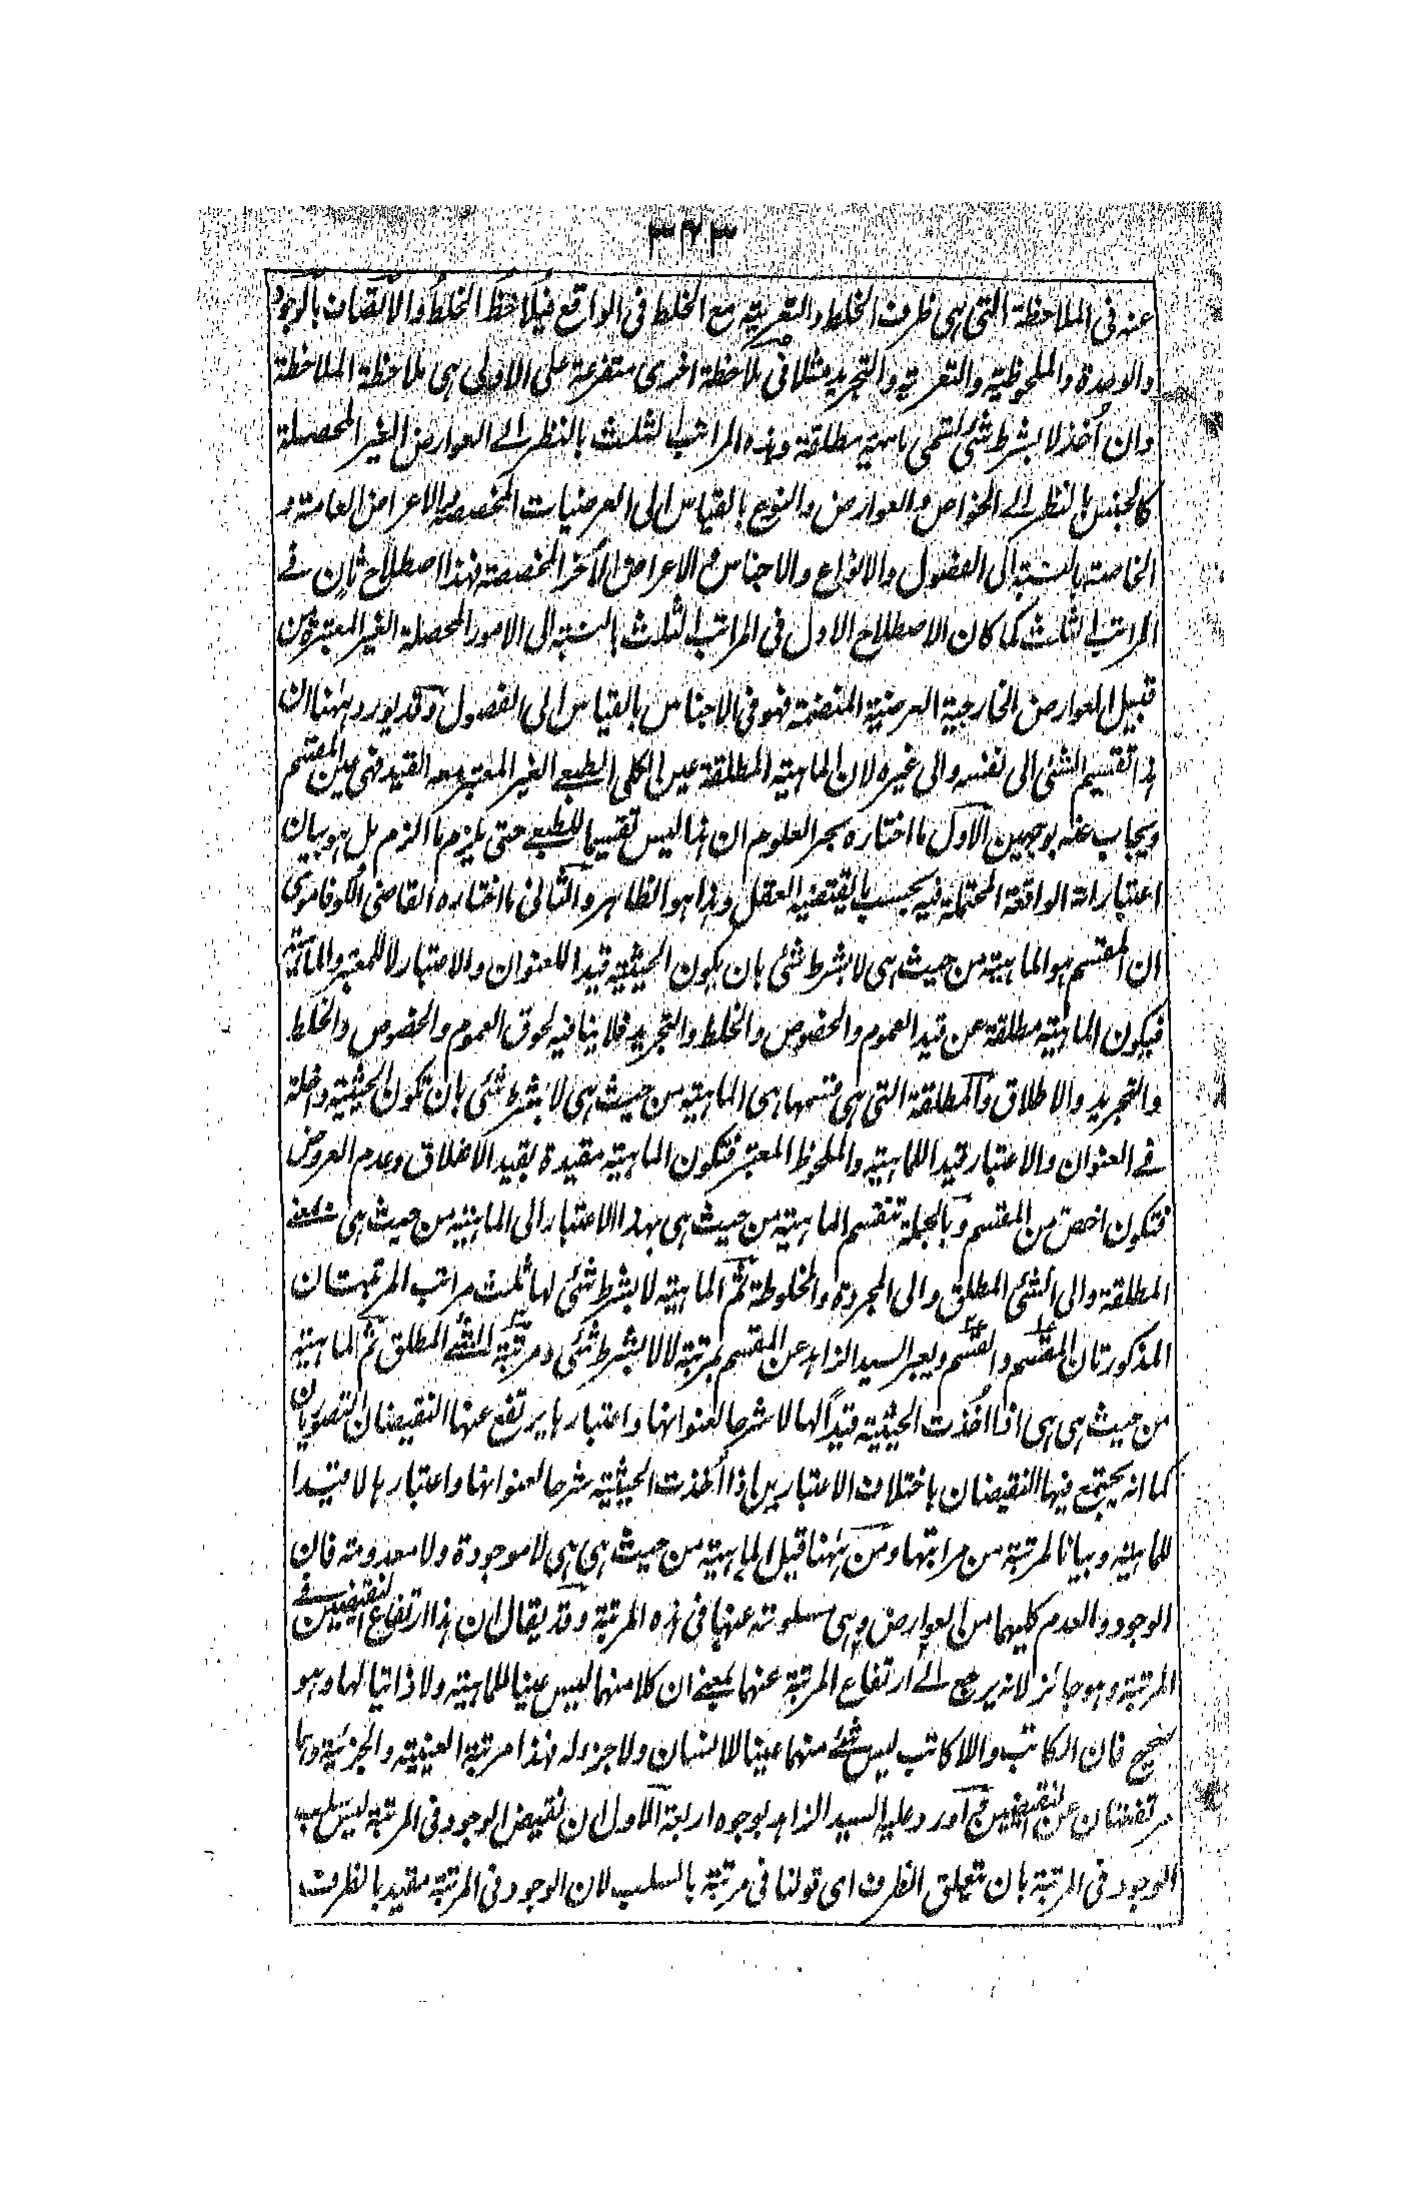 ٣٢٣
عنه فى الملاحظة التى هى ظرف الخلط والتعرية مع الخلط فى الواقع فيلاحظ الخلط والاتصاف بالوجود
والوحدة والملحوظية والتعرية والتجريد مثلا فى ملاحظة اخرى متفرعة على الاولى هى ملاحظة الملاحظة
وان اُخذ لا بشرط شئ تسمى ماهية مطلقة وهذه المراتب الثلث بالنظر الے العوارض الغير المحصلة
كالجنس بالنظر الے الخواص والعوارض والنوع بالقياس الى العرضيات المخصصة والاعراض العامة و
الخاصة بالنسبة الى الفصول والانواع والاجناس والاعراض الاُخر المخصصة فهذا اصطلاح ثانٍ فے
المراتب الثلث كما كان الاصطلاح الاول فى المراتب الثلث بالنسبة الى الامور المحصلة الغير المعتبرة من
قبيل العوارض الخارجية العرضية المنضمة فهو فى الاجناس بالقياس الى الفصول وقد يورد ههنا ان
هذا تقسيم الشئ الى نفسه والى غيره لان الماهية المطلقة عين الكلى الطبعے الغير المعتبر معه القيد فهى عين المقسم
ويجاب عنه بوجهين الاول ما اختاره بحر العلوم ان هذا ليس تقسيما للطبعے حتى يلزم ما الزم بل هو بيان
اعتباراته الواقعة المحتملة فيه بحسب ما يقتضيه العقل وهذا هو الظاهر والثانى ما اختاره القاضى الكوفاموى
ان المقسم هو الماهية من حيث هى لا بشرط شئ بان يكون الحيثية قيدا للعنوان والاعتبار لا للمعتبر والماهية
فيكون الماهية مطلقة عن قيد العموم والخصوص والخلط والتجريد فلا ينافيه لحوق العموم والخصوص والخلط
والتجريد والاطلاق والمطلقة التى هى قسمها هى الماهية من حيث هى لا بشرط شئ بان تكون الحيثية داخلة
فے العنوان والاعتبار قيدا للماهية والملحوظ المعتبر فتكون الماهية مقيدة بقيد الاطلاق وعدم العروض
فتكون اخص من المقسم وبالجملة تنقسم الماهية من حيث هى بهذا الاعتبار الى الماهية من حيث هى بمعنے
المطلقة والى الشئ المطلق والى المجردة والمخلوطة ثم الماهية لا بشرط شئ لها ثلث مراتب المرتبتان
المذكورتان المقسم والقسم ويعبر السيد الزاهد عن المقسم بمرتبة لا لا بشرط شئ ومرتبة الشے المطلق ثم الماهية
من حيث هى هى اذا اُخذت الحيثية قيدًا لها لا شرحا لعنوانها واعتبارها يرتفع عنها النقيضان التصوريان
كما انه يجتمع فيها النقيضان باختلاف الاعتبارين اذا اُخذت الحيثية شرحا لعنوانها واعتبارها لا قيدا
للماهية وبيانا لمرتبة من مراتبها ومن ههنا قيل الماهية من حيث هى هى لا موجودة ولا معدومة فان
الوجود والعدم كليهما من العوارض وهى مسلوبة عنها فى هذه المرتبة وقد يقال ان هذا ارتفاع النقيضين فے
المرتبة وهو جائز لانه يرجع الے ارتفاع المرتبة عنهما بمعنے ان كلا منهما ليس عينا للماهية ولا ذاتيا لها وهو
صحيح فان الكاتب واللا كاتب ليس شئے منهما عينا للانسان ولا جزءً له فهذا مرتبة العينية والجزئية وهما
مرتفعتان عن النقيضين فح اورد عليه السيد الزاهد بوجوه اربعة الاول ان نقيض الوجود فى المرتبة ليس سلب
الوجود فى المرتبة بان يتعلق الظرف اى قولنا فى مرتبة بالسلب لان الوجود فى المرتبة مقيد بالظرف